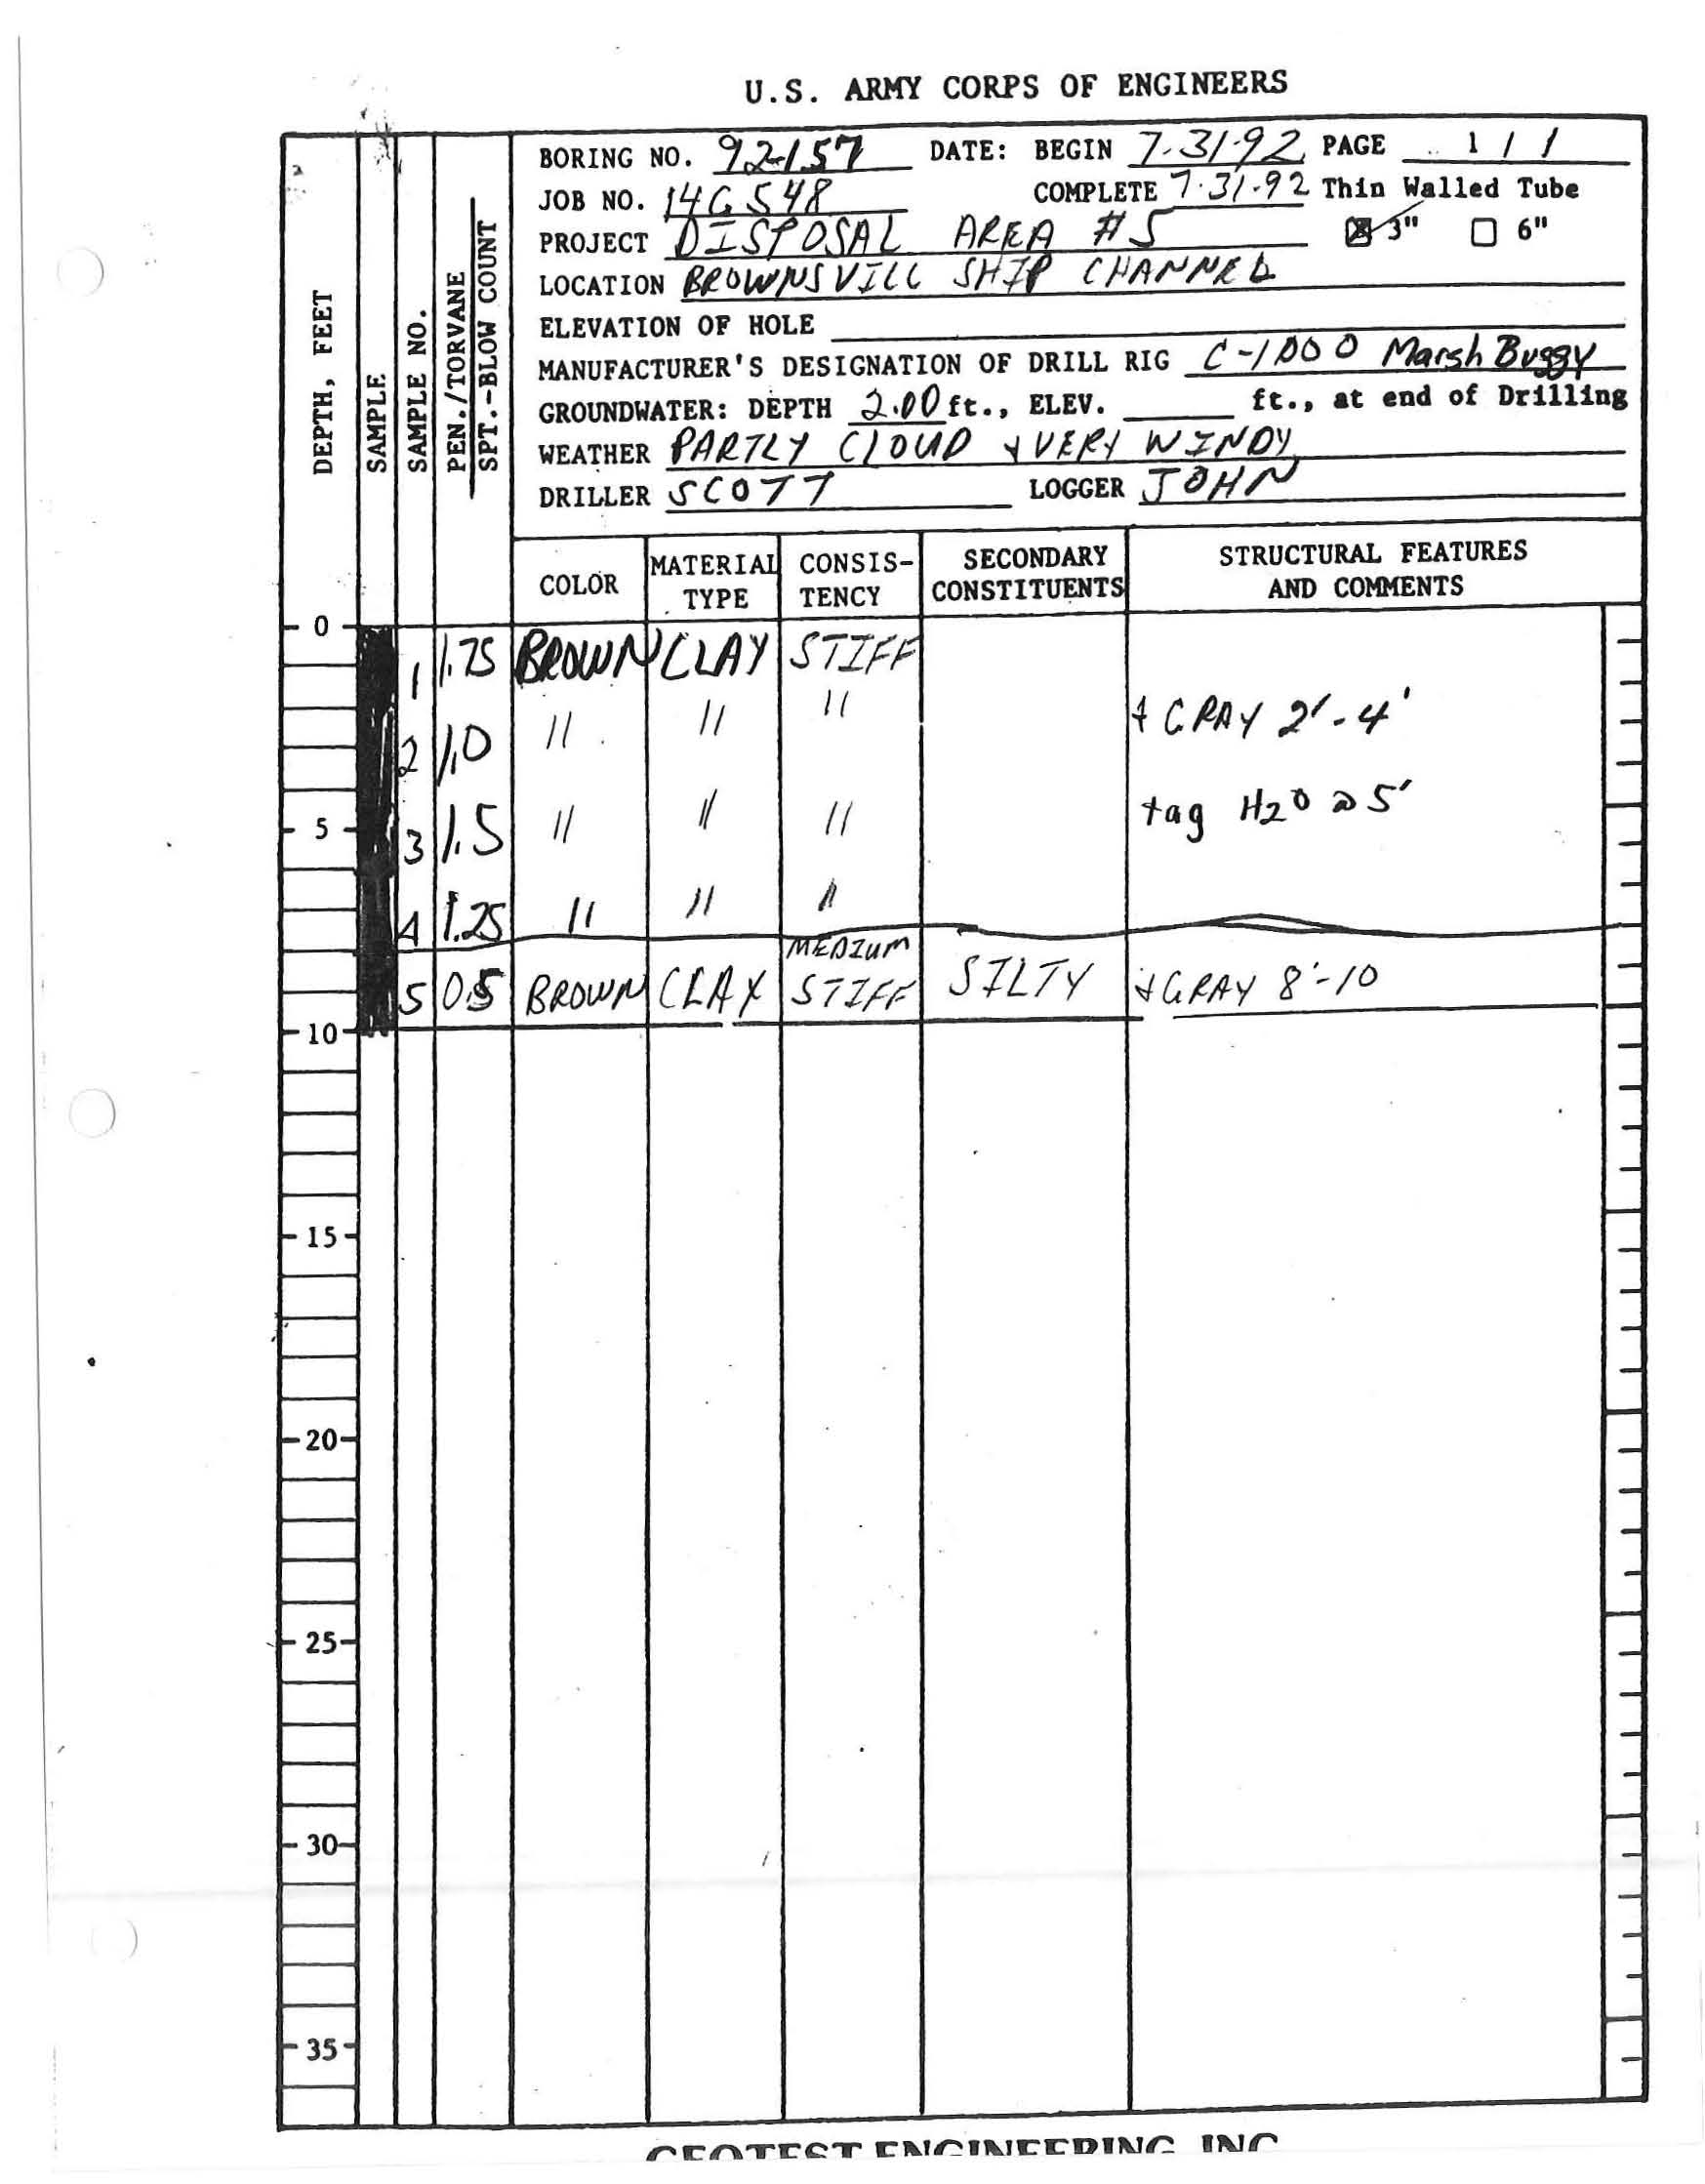 U.S. ARMY CORPS OF ENGINEERS
BORING NO. 92-157 DATE: BEGIN 7-31-92 PAGE 1 / 1
JOB NO. 14G548 COMPLETE 7-31-92 Thin Walled Tube
PROJECT DISPOSAL AREA #5 ☒ 3" ☐ 6"
LOCATION BROWNSVILL SHIP CHANNEL
ELEVATION OF HOLE
MANUFACTURER'S DESIGNATION OF DRILL RIG C-1000 Marsh Buggy
GROUNDWATER: DEPTH 2.00 ft., ELEV. ft., at end of Drilling
WEATHER PARTLY CLOUD + VERY WINDY
DRILLER SCOTT LOGGER JOHN
DEPTH, FEET
SAMPLE
SAMPLE NO.
PEN./TORVANE
SPT.-BLOW COUNT
COLOR MATERIAL TYPE CONSIS-TENCY SECONDARY CONSTITUENTS STRUCTURAL FEATURES AND COMMENTS
0
1 1.75 BROWN CLAY STIFF
2 1.0 " " " + GRAY 2'-4'
5 3 1.5 " " " tag H2O @ 5'
4 1.25 " " "
5 0.5 BROWN CLAY MEDIUM STIFF SILTY + GRAY 8'-10
10
15
20
25
30
35
GEOTEST ENGINEERING, INC